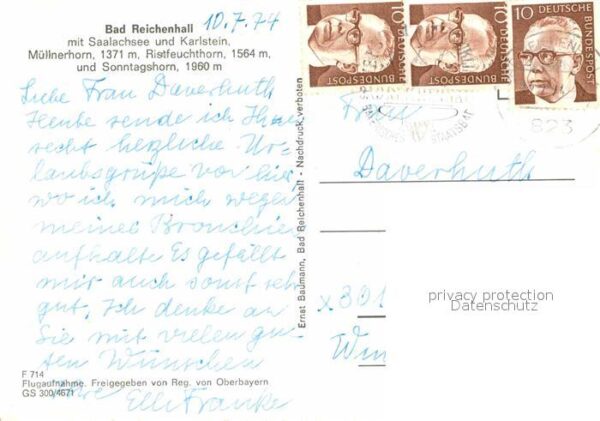 Bad Reichenhall
mit Saalachsee und Karlstein,
Müllnerhorn, 1371 m, Ristfeuchthorn, 1564 m,
und Sonntagshorn, 1960 m
10.7.74
Liebe Frau Daverhuth
Heute sende ich Ihnen
recht herzliche Ur-
laubsgrüße von hier,
wo ich mich wegen
meines Bronchien
aufhalte Es gefällt
mir auch sonst sehr
gut, Ich denke an
Sie mit vielen gu-
ten Wünschen
Ihre
Elli Franke
F 714
Flugaufnahme. Freigegeben von Reg. von Oberbayern
GS 300/4671
Ernst Baumann, Bad Reichenhall - Nachdruck verboten
10 DEUTSCHE BUNDESPOST
10 DEUTSCHE BUNDESPOST
10 DEUTSCHE BUNDESPOST
BAYERISCHES STAATSBAD
823
Frau
Daverhuth
x 301
privacy protection
Datenschutz